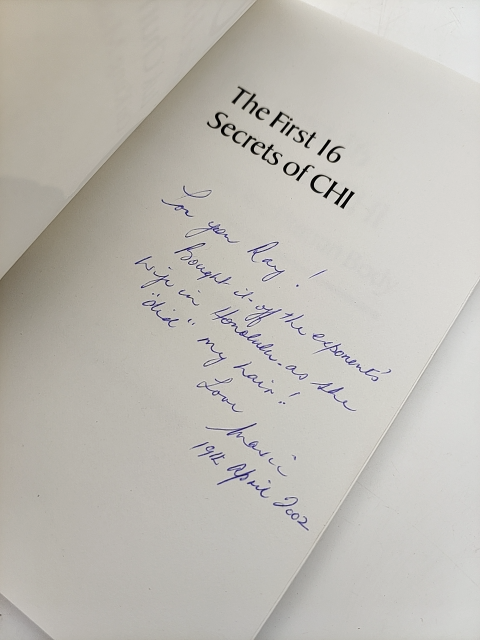 The First 16
Secrets of CHI
For you Ray!
Bought it off the exponents'
wife in Honolulu - as she
"did" my hair!
Love
19th April 2002